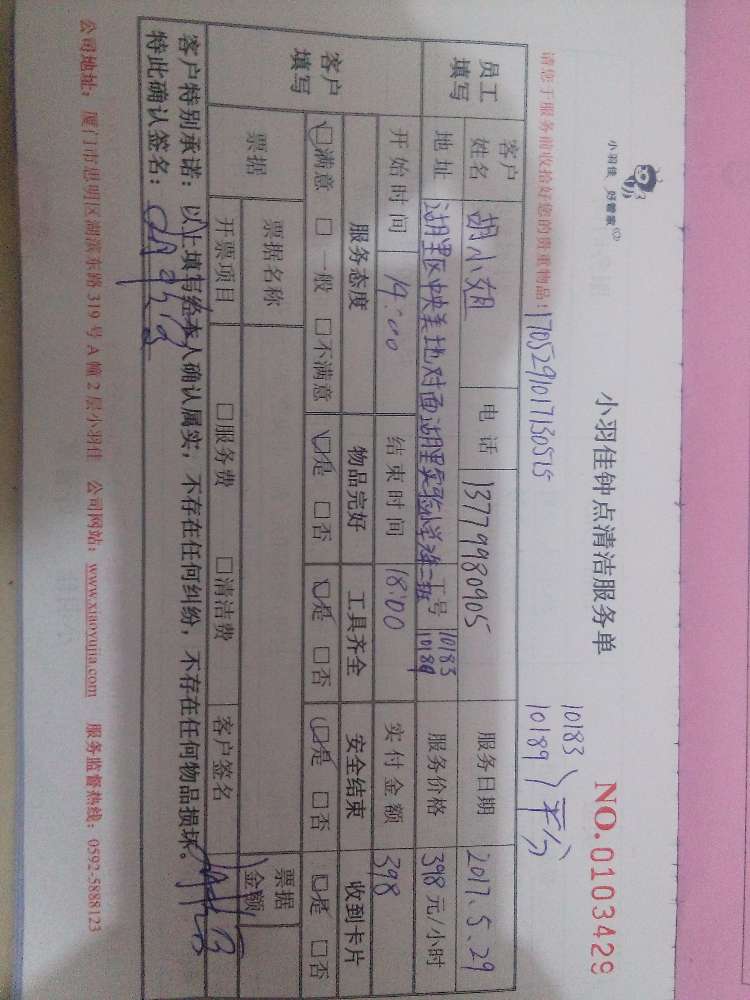 小羽佳 好管家
小羽佳钟点清洁服务单
NO.0103429
10183
10189 平分
请您于服务前收拾好您的贵重物品! 170529101713051​5
员工填写
客户姓名 胡小姐 电话 13779980905 服务日期 2017.5.29
地址 湖里区中央美地对面湖里实验小学 二班 工号 10183 10189 服务价格 398 元/小时
开始时间 14:00 结束时间 18:00 实付金额 398
客户填写
服务态度 物品完好 工具齐全 安全结束 收到卡片
□满意 □一般 □不满意 □是 □否 □是 □否 □是 □否 □是 □否
票据 票据名称 票据金额
开票项目 □服务费 □清洁费 客户签名
客户特别承诺:以上填写经本人确认属实,不存在任何纠纷,不存在任何物品损坏。
特此确认签名:
公司地址:厦门市思明区湖滨东路319号A幢2层小羽佳 公司网站:www.xiaoyujia.com 服务监督热线:0592-5888123